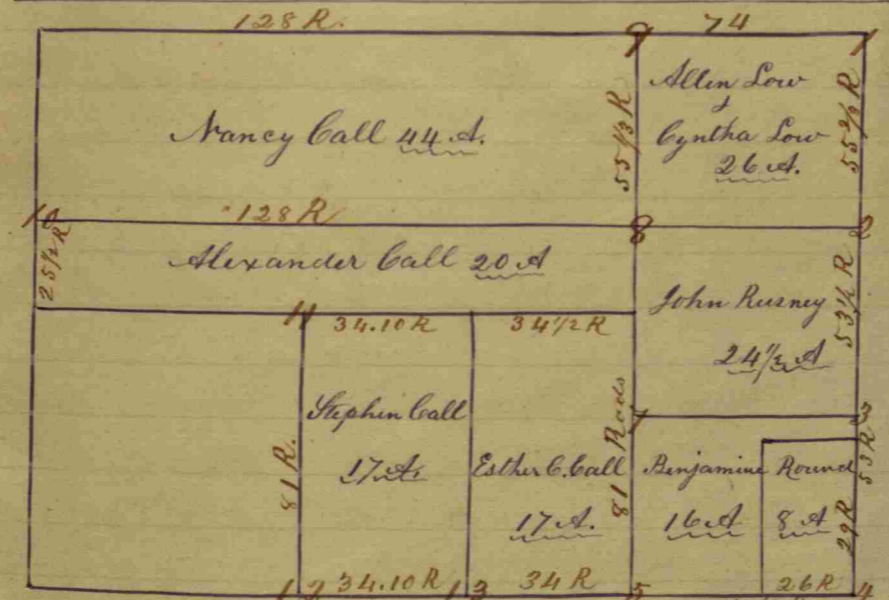 128 R.
9
74
1
Nancy Call 44 A.
55 1/3 R
Allen Low
&
Cyntha Low
26 A.
10
128 R
8
2
25 1/2 R
Alexander Call 20 A
John Rusney
24 1/2 A
53 1/2 R
11
34.10 R
34 1/2 R
Stephin Call
17 A.
81 R.
Esther C. Call
17 A.
81 Rods
7
3
Benjamine Round
16 A
8 A
53 R
29 R
12
34.10 R
13
34 R
5
26 R
4